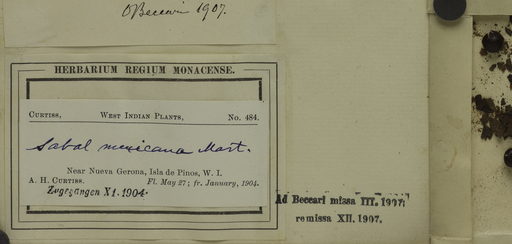 OBeccari 1907.
HERBARIUM REGIUM MONACENSE.
CURTISS, WEST INDIAN PLANTS, No. 484.
Sabal mexicana Mart.
Near Nueva Gerona, Isla de Pinos, W. I.
A. H. CURTISS. Fl. May 27; fr. January, 1904.
Zugegangen XI. 1904.
Ad Beccari missa III. 1907;
remissa XII. 1907.